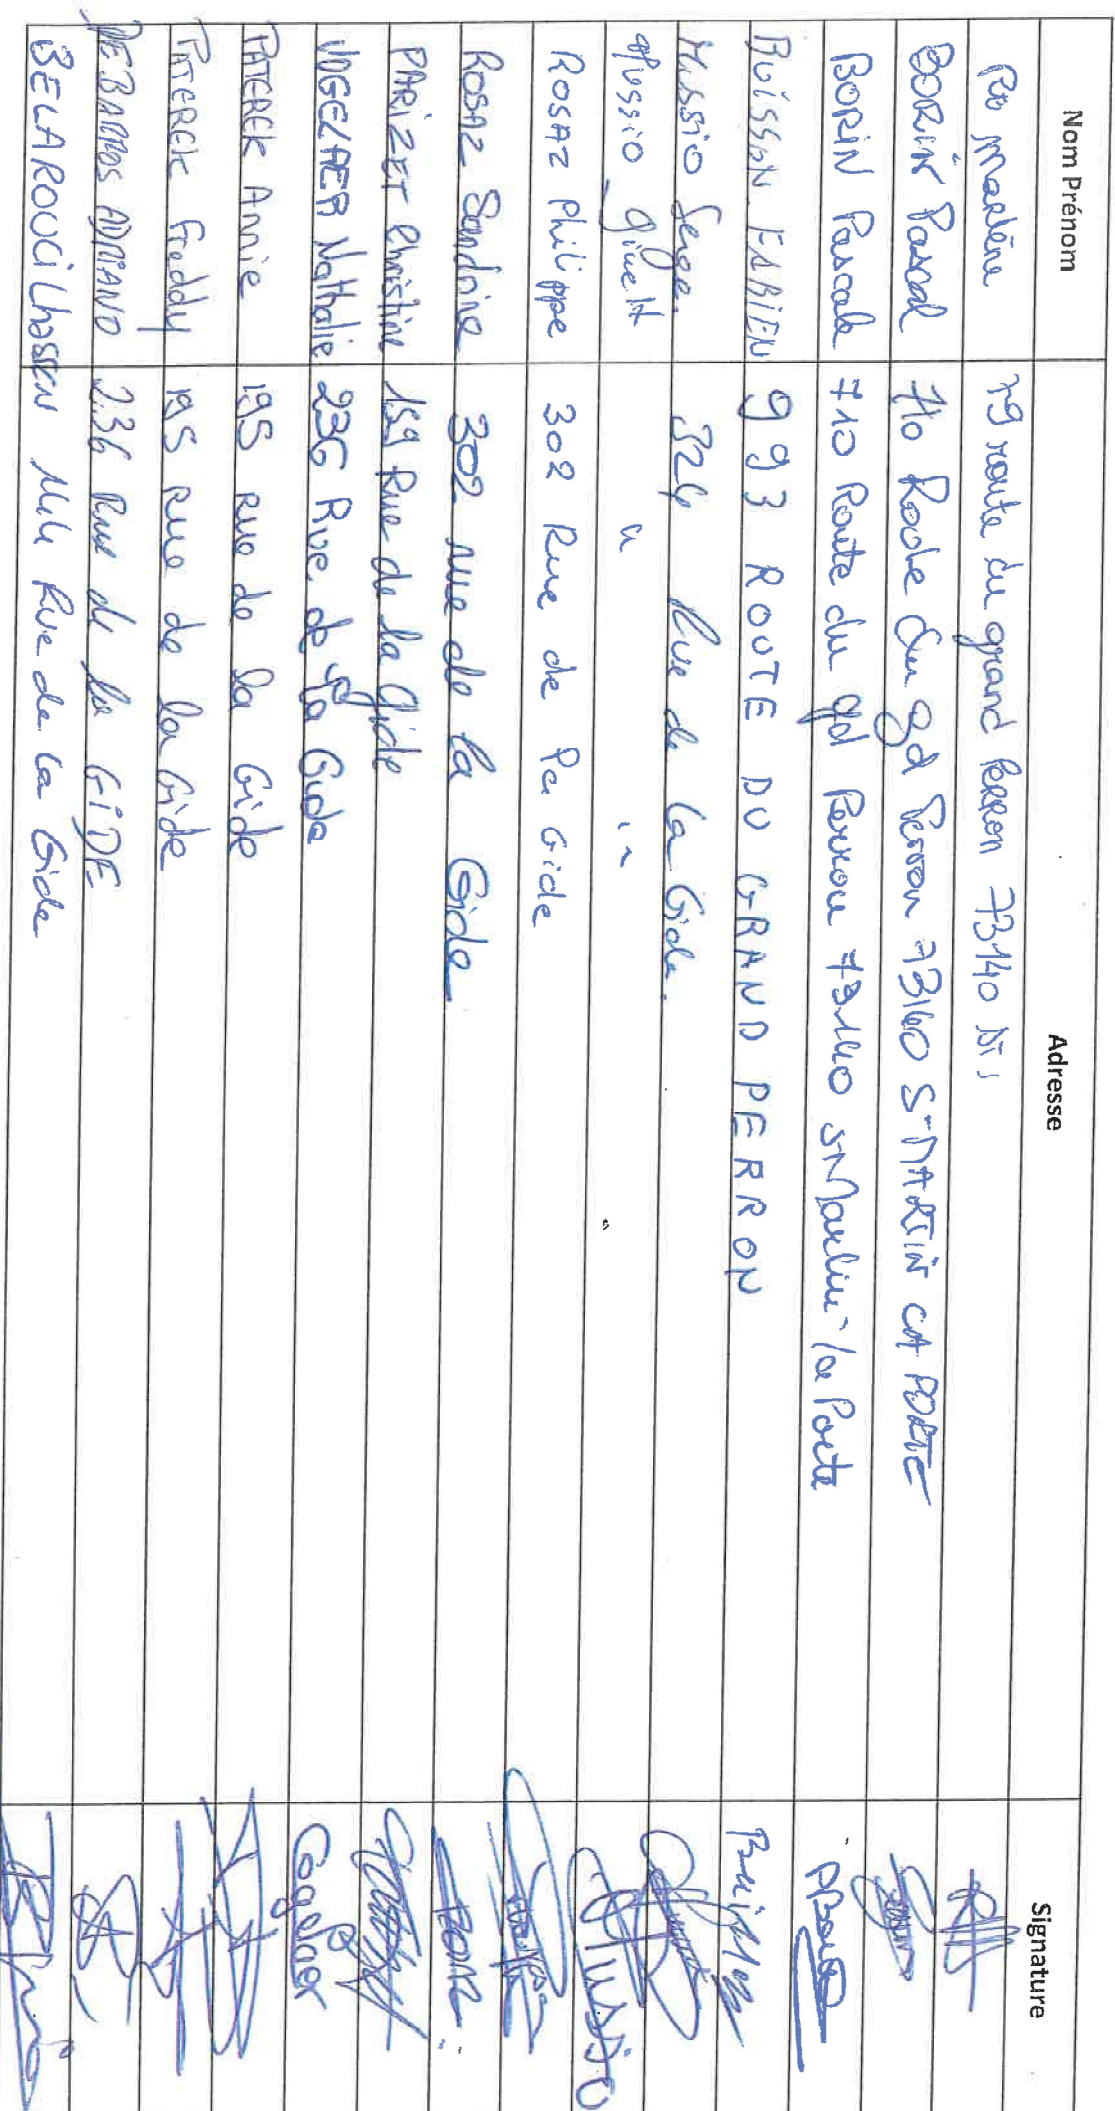 Nom Prénom Adresse Signature
Marlène 79 route du grand Perron 73140
BORIN Pascal 710 Route du gd Perron 73140 St MARTIN LA PORTE
BORIN Pascale 710 Route du gd Perron 73140 St Martin la Porte
BUISSON FABIEN 993 ROUTE DU GRAND PERRON
Mussio Serge 324 Rue de la Gide.
Mussio " "
ROSAZ Philippe 302 Rue de la Gide
ROSAZ Sandrine 302 rue de la Gide
PARIZET Christine 159 Rue de la Gide
Nathalie 236 Rue de la Gide
PATERCK Annie 195 rue de la Gide
PATERCK Freddy 195 rue de la Gide
DE BARROS ADRIANO 236 Rue de la GIDE
BELAROUCI Lhossen Rue de la Gide